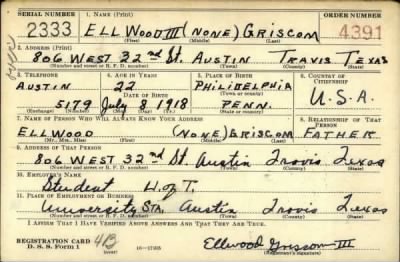 SERIAL NUMBER 1. NAME (Print) ORDER NUMBER
2333 ELLWOOD III (NONE) GRISCOM 4391
(First) (Middle) (Last)
2. ADDRESS (Print)
806 WEST 32nd St. AUSTIN TRAVIS TEXAS
(Number and street or R. F. D. number) (Town) (County) (State)
3. TELEPHONE 4. AGE IN YEARS 5. PLACE OF BIRTH 6. COUNTRY OF CITIZENSHIP
AUSTIN 22 PHILIDELPHIA
DATE OF BIRTH (Town or county) U.S.A.
5179 July 8 1918 PENN.
(Exchange) (Number) (Mo.) (Day) (Yr.) (State or country)
7. NAME OF PERSON WHO WILL ALWAYS KNOW YOUR ADDRESS 8. RELATIONSHIP OF THAT PERSON
ELLWOOD (NONE) GRISCOM FATHER
(Mr., Mrs., Miss) (First) (Middle) (Last)
9. ADDRESS OF THAT PERSON
806 WEST 32nd St. Austin Travis Texas
(Number and street or R. F. D. number) (Town) (County) (State)
10. EMPLOYER'S NAME
Student U. of T.
11. PLACE OF EMPLOYMENT OR BUSINESS
University STA. Austin Travis Texas
(Number and street or R. F. D. number) (Town) (County) (State)
I AFFIRM THAT I HAVE VERIFIED ABOVE ANSWERS AND THAT THEY ARE TRUE.
REGISTRATION CARD
D. S. S. Form 1 16-17105 Ellwood Griscom III
(Registrant's signature)